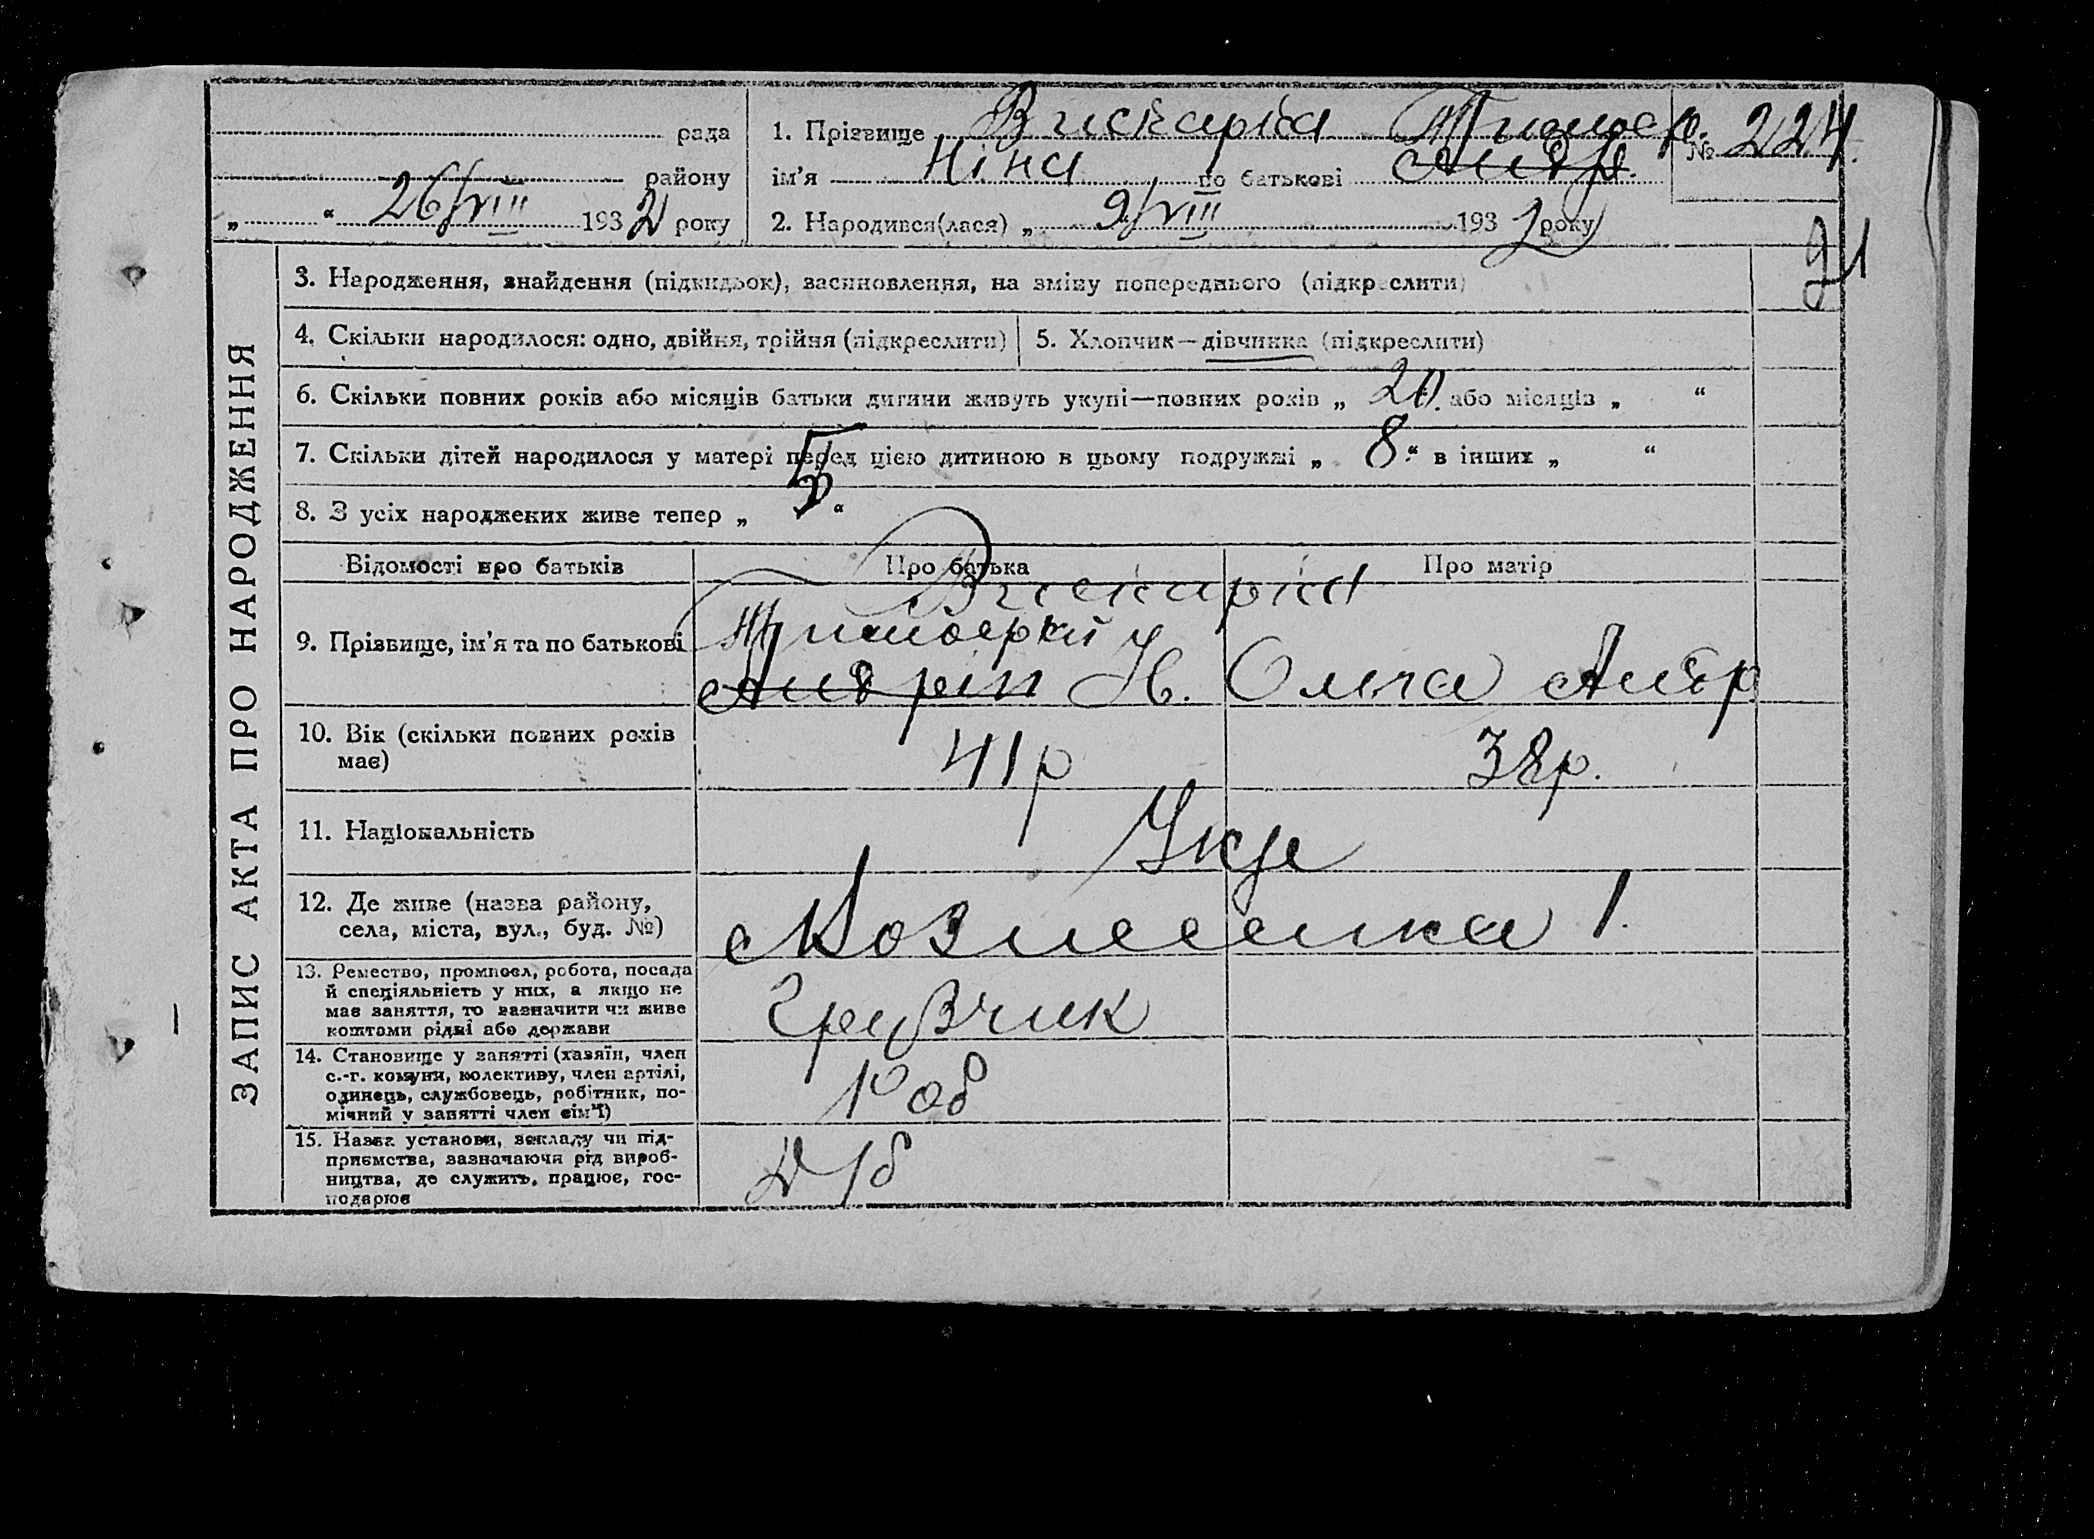 рада
району
„ “ 26/VIII 1932 року
1. Прізвище Вискарка Тимоф. № 224.
ім’я Ніна по батькові Андр.
2. Народився(лася) „ 9/VIII 1932 року
21
ЗАПИС АКТА ПРО НАРОДЖЕННЯ
3. Народження, знайдення (підкидьок), засиновлення, на зміну попереднього (підкреслити)
4. Скільки народилося: одно, двійня, трійня (підкреслити) 5. Хлопчик—дівчинка (підкреслити)
6. Скільки повних років або місяців батьки дитини живуть укупі—повних років „ 20. або місяців „ “
7. Скільки дітей народилося у матері перед цією дитиною в цьому подружжі „ 8 “ в інших „ “
8. З усіх народжених живе тепер „ 5 “
Відомості про батьків Про батька Про матір
9. Прізвище, ім’я та по батькові
Вискарка
Тимофей
Андрей Н. Ольга Андр.
10. Вік (скільки повних років
має)
41 р 38 р.
11. Національність Укр
12. Де живе (назва району,
села, міста, вул., буд. №)
Вознесенка 1.
13. Ремество, промисел, робота, посада
й спеціяльність у них, а якщо не
має заняття, то зазначити чи живе
коштами рідні або держави
Грузчик
14. Становище у занятті (хазяїн, член
с.-г. комуни, колективу, член артілі,
одинець, службовець, робітник, по-
мічний у занятті член сім’ї)
Роб
15. Назва установи, закладу чи під-
приємства, зазначаючи рід вироб-
ництва, де служить, працює, гос-
подарює